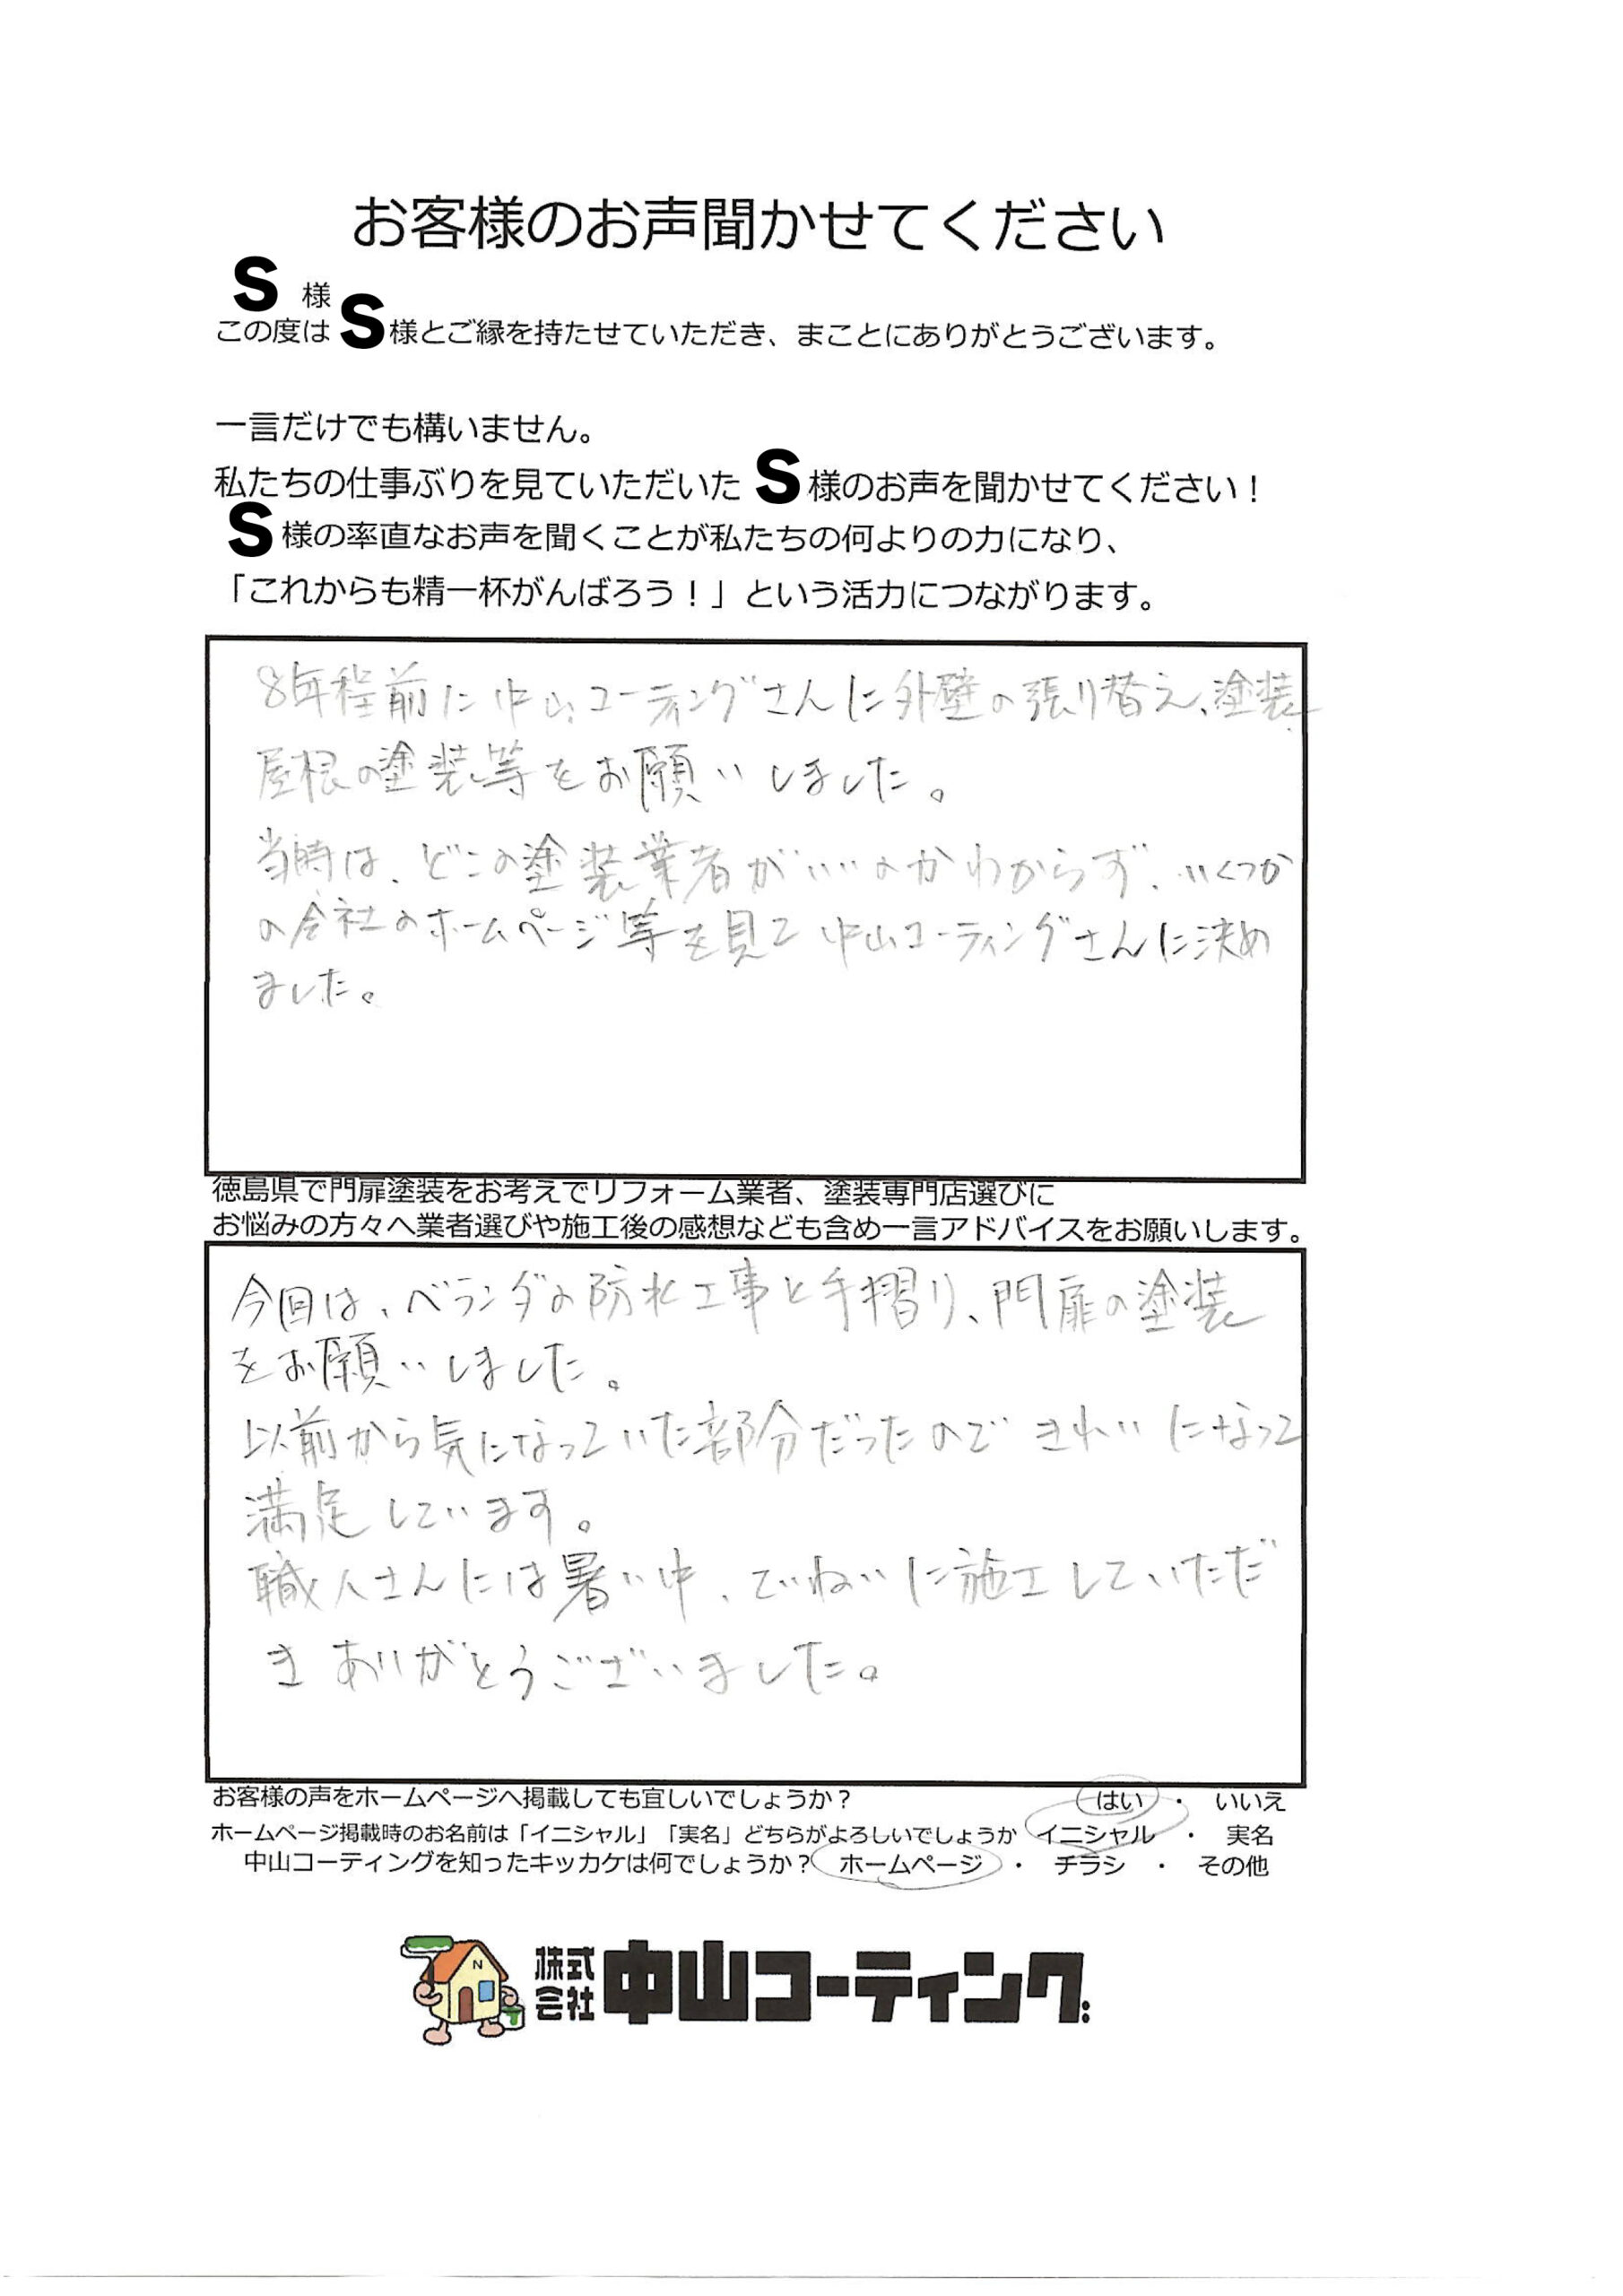 お客様のお声聞かせてください
S 様
この度は S 様とご縁を持たせていただき、まことにありがとうございます。
一言だけでも構いません。
私たちの仕事ぶりを見ていただいた S 様のお声を聞かせてください！
S 様の率直なお声を聞くことが私たちの何よりの力になり、
「これからも精一杯がんばろう！」という活力につながります。
8年程前に中山コーティングさんに外壁の張り替え、塗装
屋根の塗装等をお願いしました。
当時は、どこの塗装業者がいいのかわからず、いくつか
の会社のホームページ等を見て中山コーティングさんに決め
ました。
徳島県で門扉塗装をお考えでリフォーム業者、塗装専門店選びに
お悩みの方々へ業者選びや施工後の感想なども含め一言アドバイスをお願いします。
今回は、ベランダの防水工事と手摺り、門扉の塗装
をお願いしました。
以前から気になっていた部分だったので きれいになって
満足しています。
職人さんには暑い中、ていねいに施工していただ
き ありがとうございました。
お客様の声をホームページへ掲載しても宜しいでしょうか？ はい ・ いいえ
ホームページ掲載時のお名前は「イニシャル」「実名」どちらがよろしいでしょうか イニシャル ・ 実名
中山コーティングを知ったキッカケは何でしょうか？ ホームページ ・ チラシ ・ その他
N 株式会社 中山コーティング